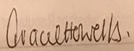 Gracie Howells.